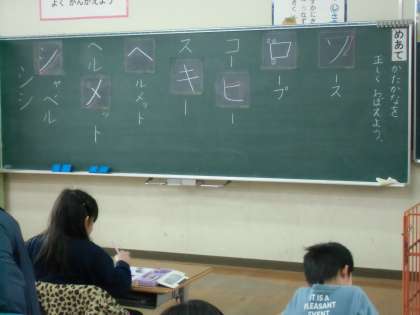 よく かんがえよう
めあて
かたかなを
正しくおぼえよう。
ソース
ロープ
コーヒー
スキー
ヘルメット
ヘルメット
シャベル
シン
IT IS A
PLEASANT
EVENT